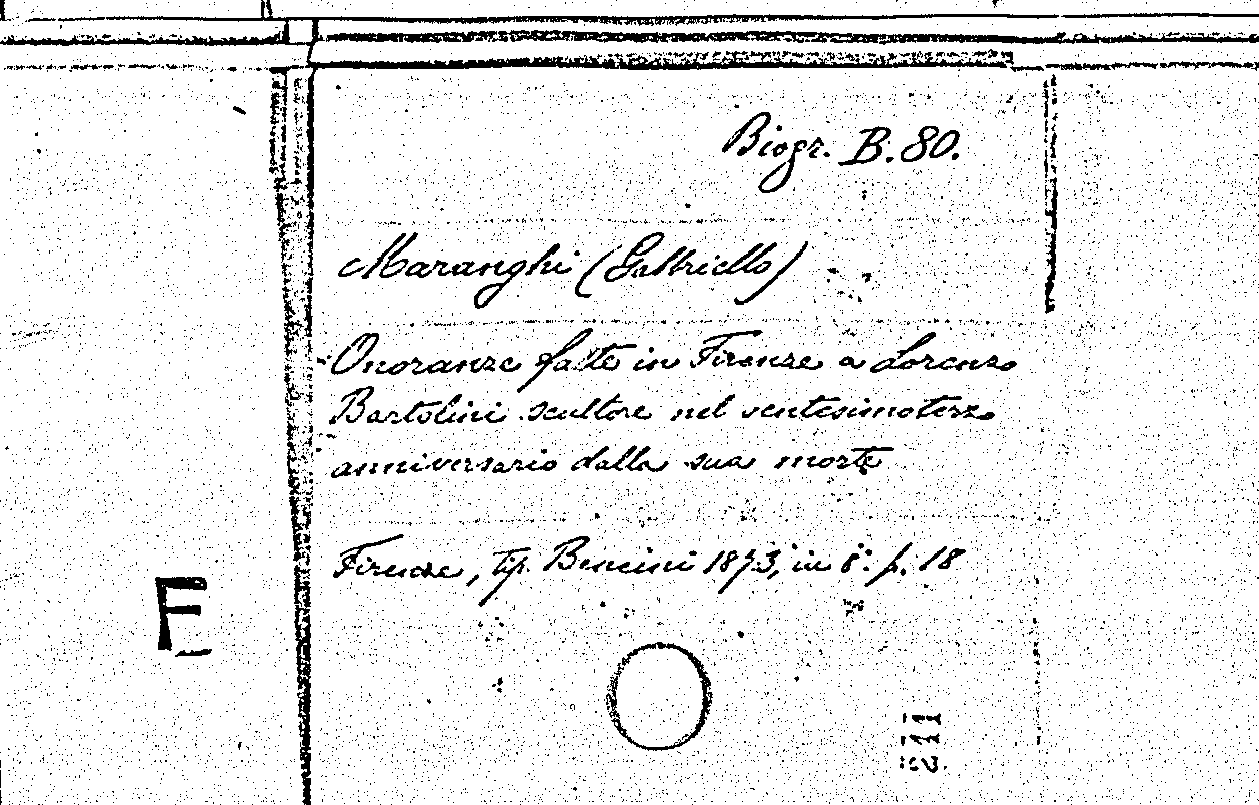 Biogr. B. 80.
Maranghi (Gabbriello)
Onoranze fatte in Firenze a Lorenzo
Bartolini scultore nel ventesimoterzo
anniversario della sua morte
Firenze, tip. Bencini 1873, in 8.° p. 18
F